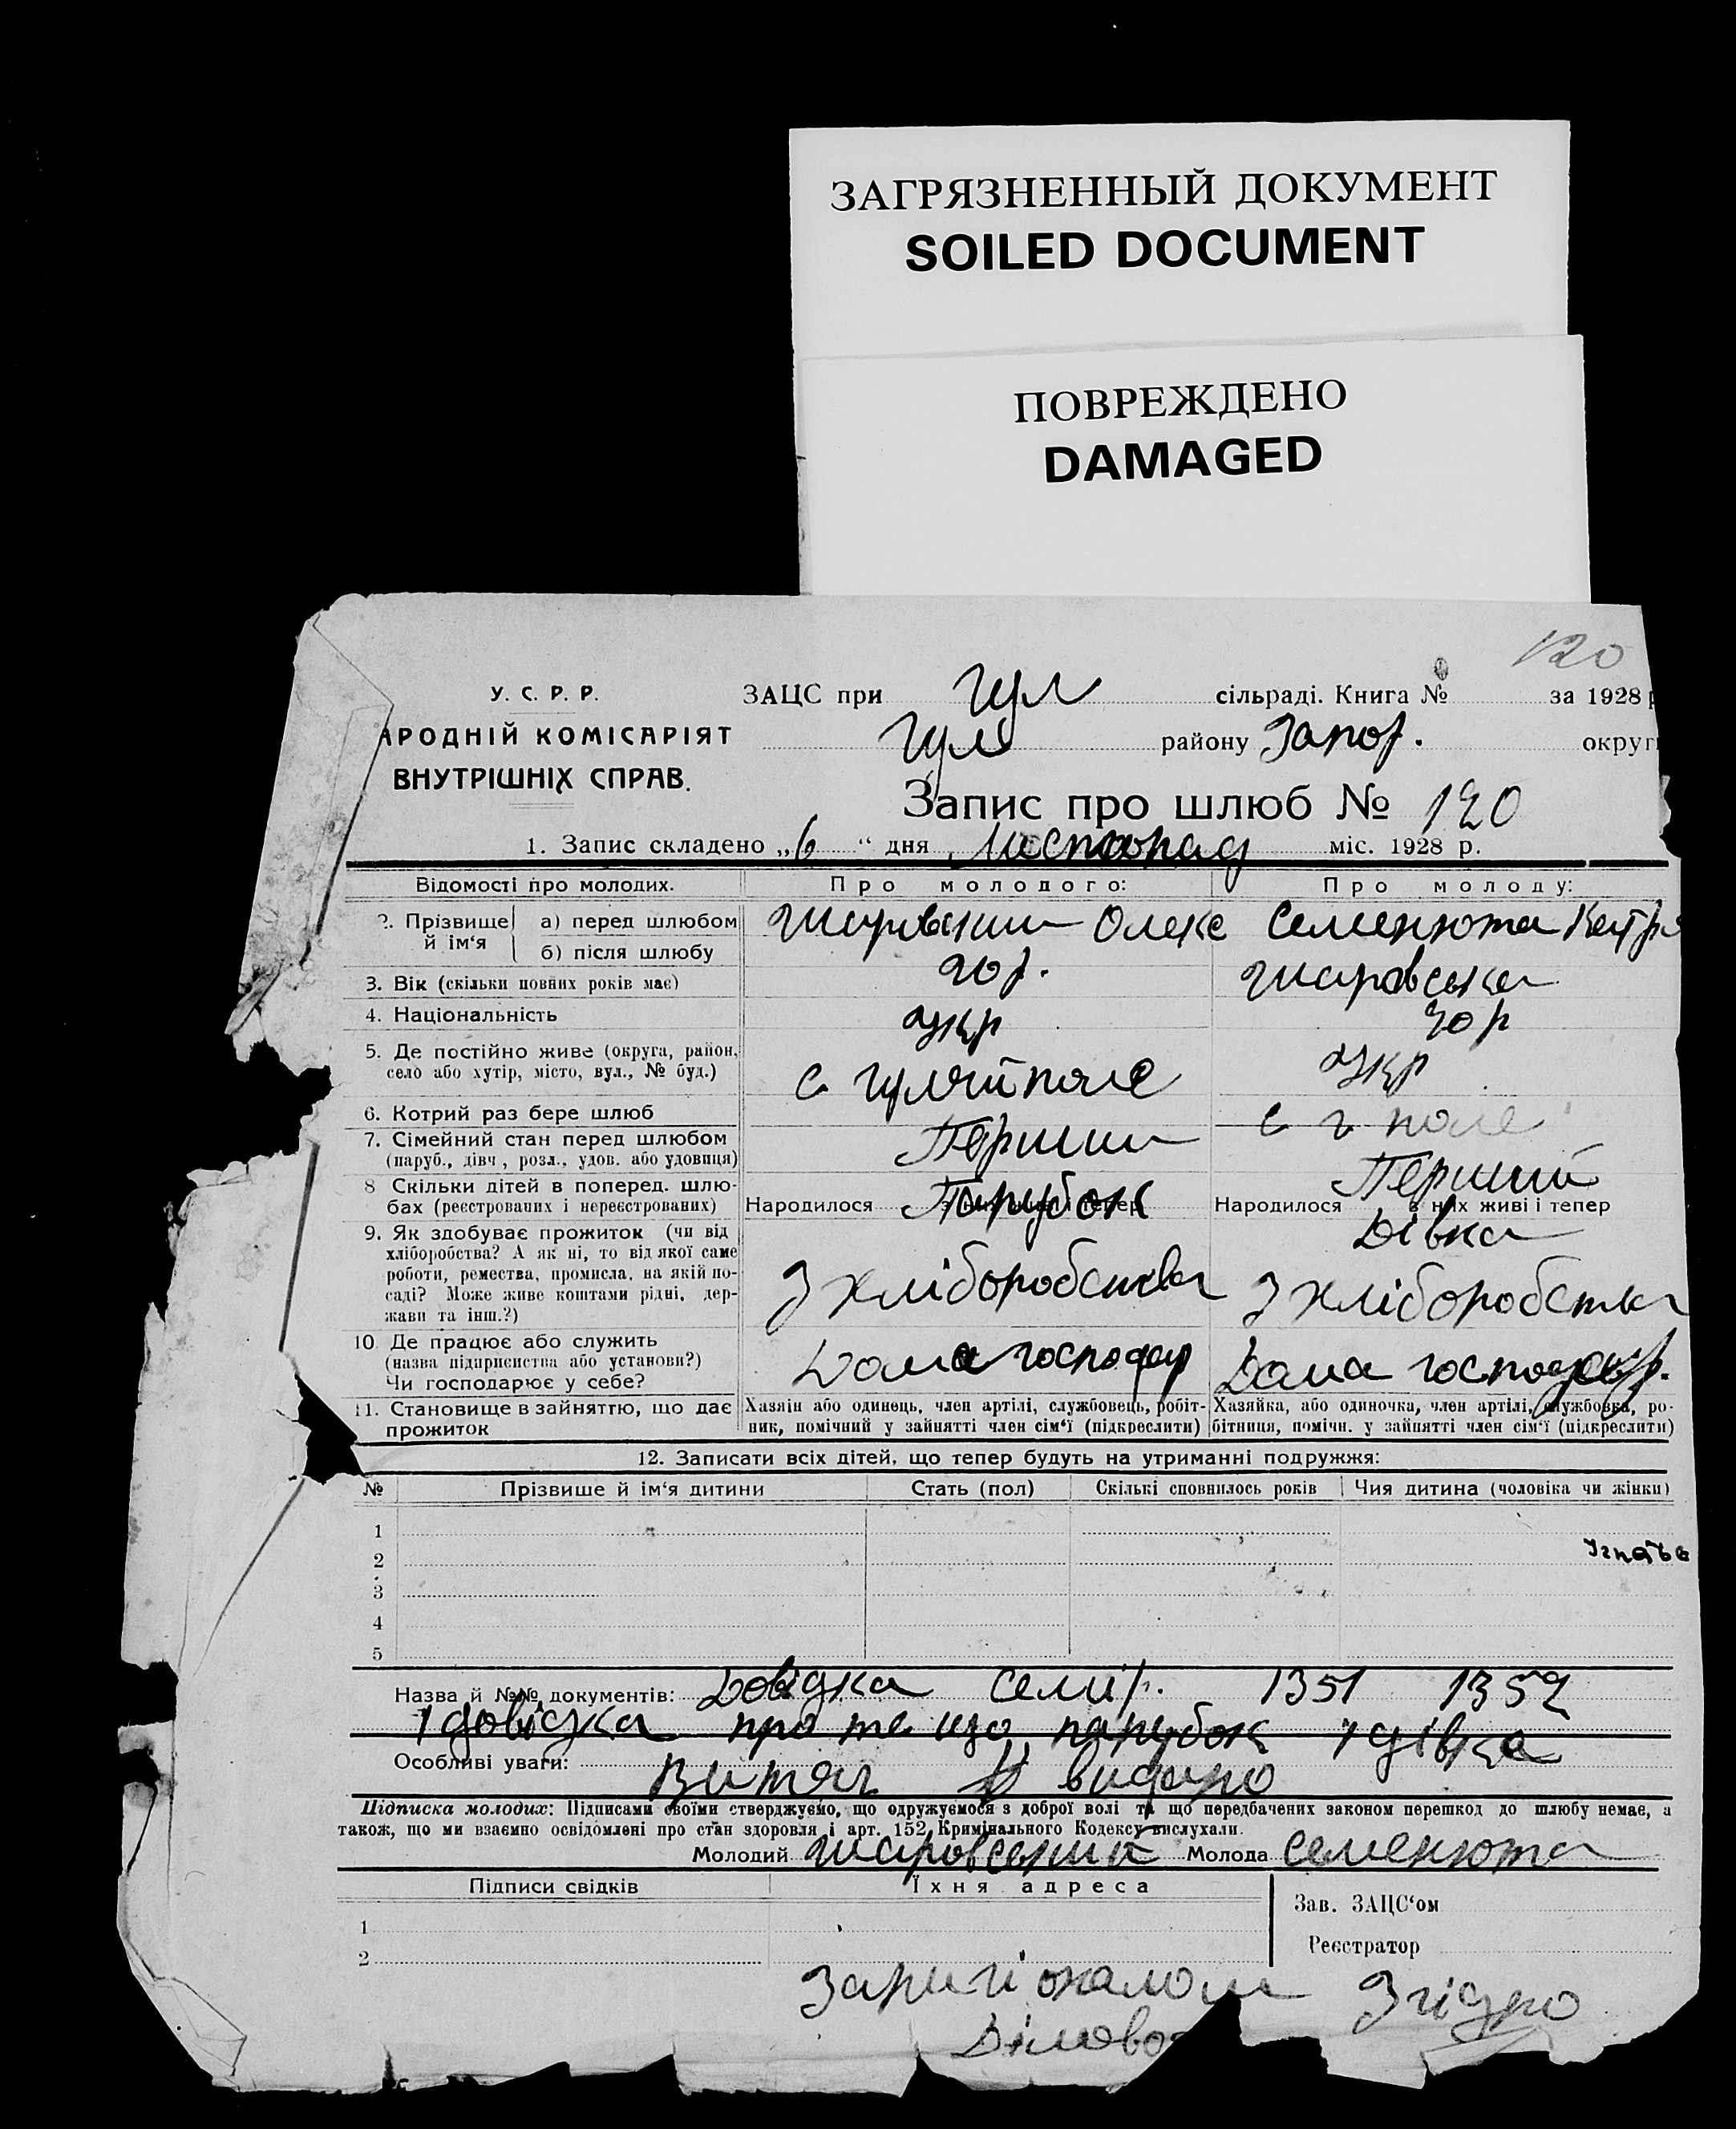 ЗАГРЯЗНЕННЫЙ ДОКУМЕНТ
SOILED DOCUMENT
ПОВРЕЖДЕНО
DAMAGED
120
У. С. Р. Р.
АРОДНІЙ КОМІСАРІЯТ
ВНУТРІШНІХ СПРАВ.
ЗАЦС при Гул сільраді. Книга № за 1928 р
Гул району Запор. округ
Запис про шлюб № 120
1. Запис складено „6“ дня Листопад міс. 1928 р.
Відомості про молодих. Про молодого: Про молоду:
2. Прізвище й ім‘я а) перед шлюбом Шаровский Олекс Семенюта Катр
б) після шлюбу
3. Вік (скільки повних років має) 20р. Шаровська
4. Національність Укр 20 р
5. Де постійно живе (округа, район, село або хутір, місто, вул., № буд.) с Гуляйполе Укр
6. Котрий раз бере шлюб Перший с г поле
7. Сімейний стан перед шлюбом (паруб., дівч., розл., удов. або удовиця) Перший
8 Скільки дітей в поперед. шлюбах (реєстрованих і нереєстрованих) Народилося Парубок з них живі і тепер Народилося з них живі і тепер
Дівка
9. Як здобуває прожиток (чи від хліборобства? А як ні, то від якої саме роботи, ремества, промисла, на якій посаді? Може живе коштами рідні, держави та інш.?) З хліборобства З хліборобства
10. Де працює або служить (назва підприємства або установи?) Чи господарює у себе? Дома господар Дома господар.
11. Становище в зайняттю, що дає прожиток Хазяїн або одинець, член артілі, службовець, робітник, помічний у зайнятті член сім‘ї (підкреслити) Хазяйка, або одиночка, член артілі, службовка, робітниця, помічн. у зайнятті член сім‘ї (підкреслити)
12. Записати всіх дітей, що тепер будуть на утриманні подружжя:
№ Прізвище й ім‘я дитини Стать (пол) Скількі сповнилось років Чия дитина (чоловіка чи жінки)
1
2
3
4
5
Назва й №№ документів: Довідка 1351 1352
і довідка про те що парубок і дівка
Особливі уваги: Витяг видано
Підписка молодих: Підписами своїми стверджуємо, що одружуємося з доброї волі та що передбачених законом перешкод до шлюбу немає, а
також, що ми взаємно освідомлені про стан здоровля і арт. 152 Кримінального Кодексу вислухали.
Молодий Шаровський Молода Семенюта
Підписи свідків Їхня адреса
Зав. ЗАЦС‘ом
1
Реєстратор
2
Згідно